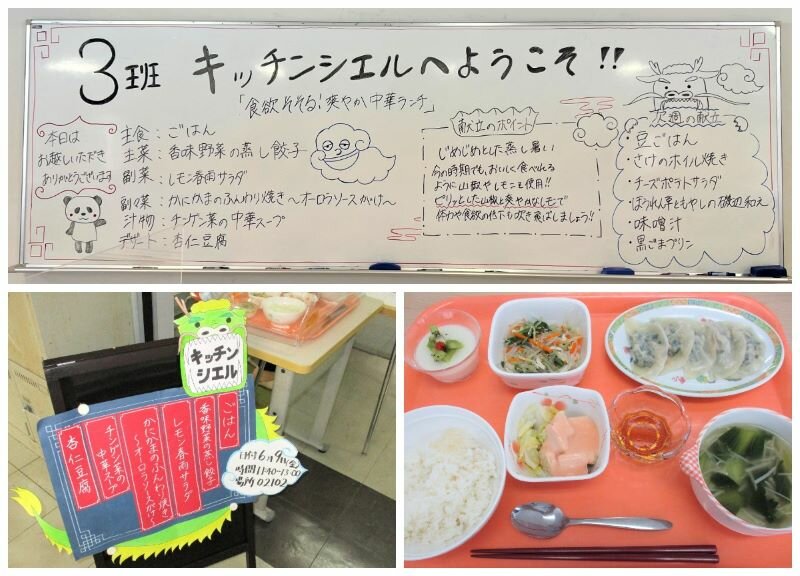 3班 キッチンシエルへようこそ!!
「食欲そそる!爽やか中華ランチ」
本日は
お越しいただき
ありがとうございます
主食:ごはん
主菜:香味野菜の蒸し餃子
副菜:レモン春雨サラダ
副々菜:かにかまのふんわり焼き~オーロラソースがけ~
汁物:チンゲン菜の中華スープ
デザート:杏仁豆腐
献立のポイント
じめじめとした蒸し暑い
今の時期でも、おいしく食べれる
ように山椒やレモンを使用!!
ピリッとした山椒と爽やかなレモンで
体力や食欲の低下も吹き飛ばしましょう!!
次週の献立
・豆ごはん
・さけのホイル焼き
・チーズポテトサラダ
・ほうれん草ともやしの磯辺和え
・味噌汁
・黒ごまプリン
キッチン
シエル
ごはん
香味野菜の蒸し餃子
レモン春雨サラダ
かにかまのふんわり焼き
~オーロラソースがけ~
チンゲン菜の
中華スープ
杏仁豆腐
日付 6月9日(金)
時間 11:40~13:00
場所 02102